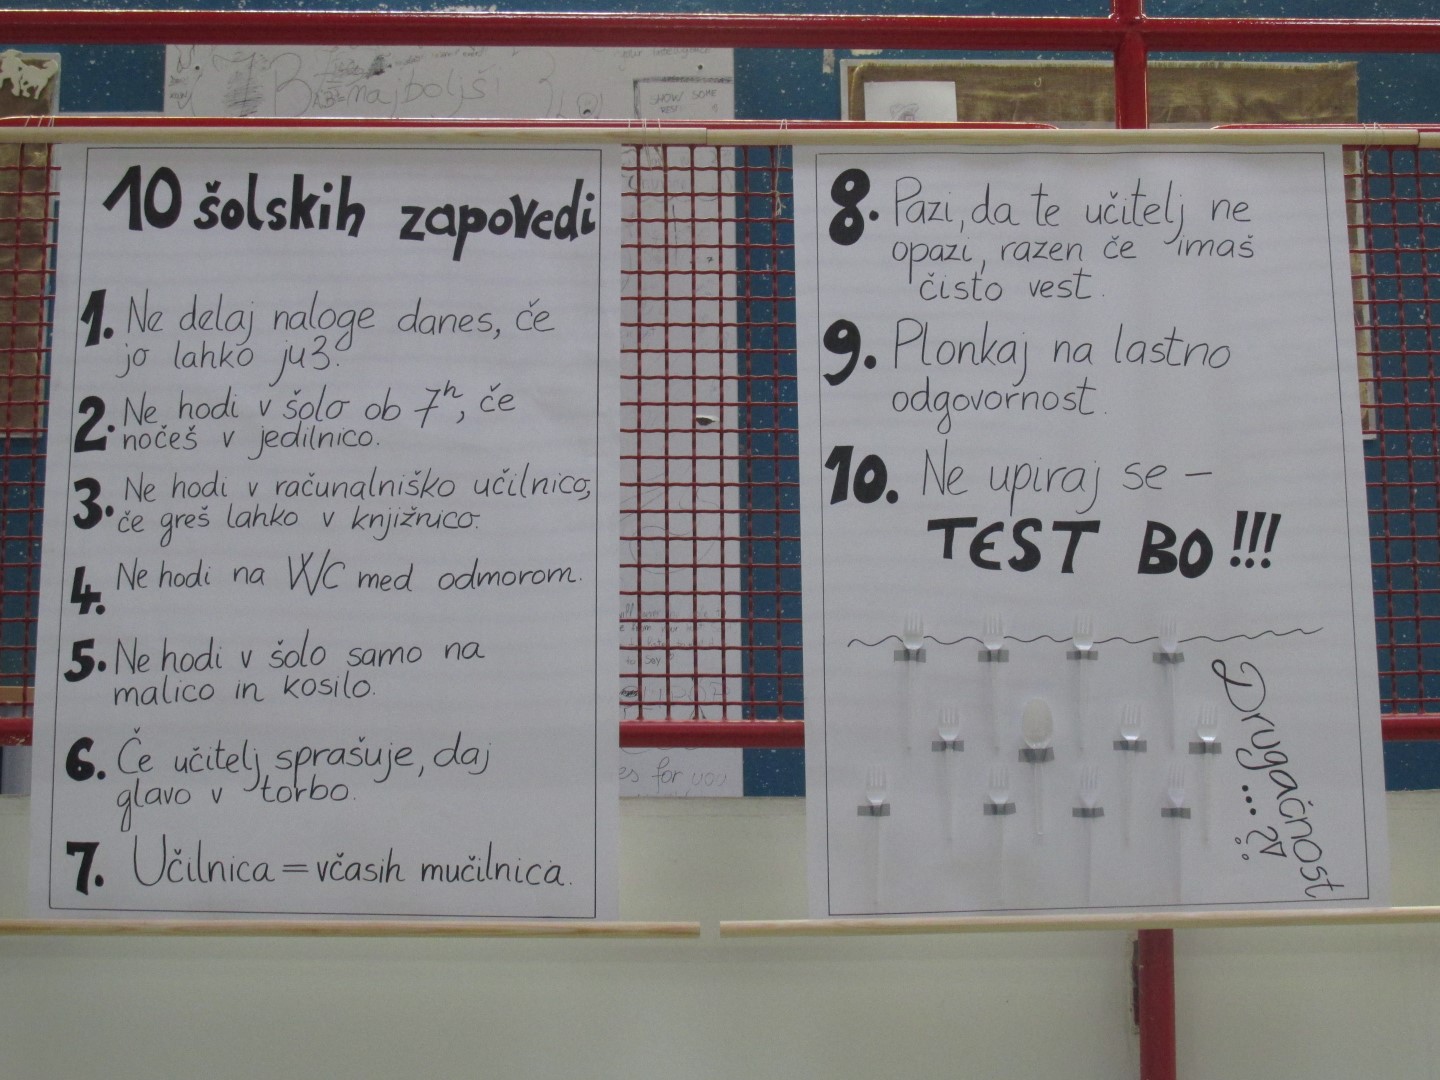 7.B
najboljši
SHOW SOME
10 šolskih zapovedi
1. Ne delaj naloge danes, če
jo lahko ju3.
2. Ne hodi v šolo ob 7h, če
nočeš v jedilnico.
3. Ne hodi v računalniško učilnico,
če greš lahko v knjižnico.
4. Ne hodi na WC med odmorom.
5. Ne hodi v šolo samo na
malico in kosilo.
6. Če učitelj sprašuje, daj
glavo v torbo.
7. Učilnica = včasih mučilnica.
8. Pazi, da te učitelj ne
opazi, razen če imaš
čisto vest.
9. Plonkaj na lastno
odgovornost.
10. Ne upiraj se –
TEST BO!!!
Drugačnost
...?!
for you